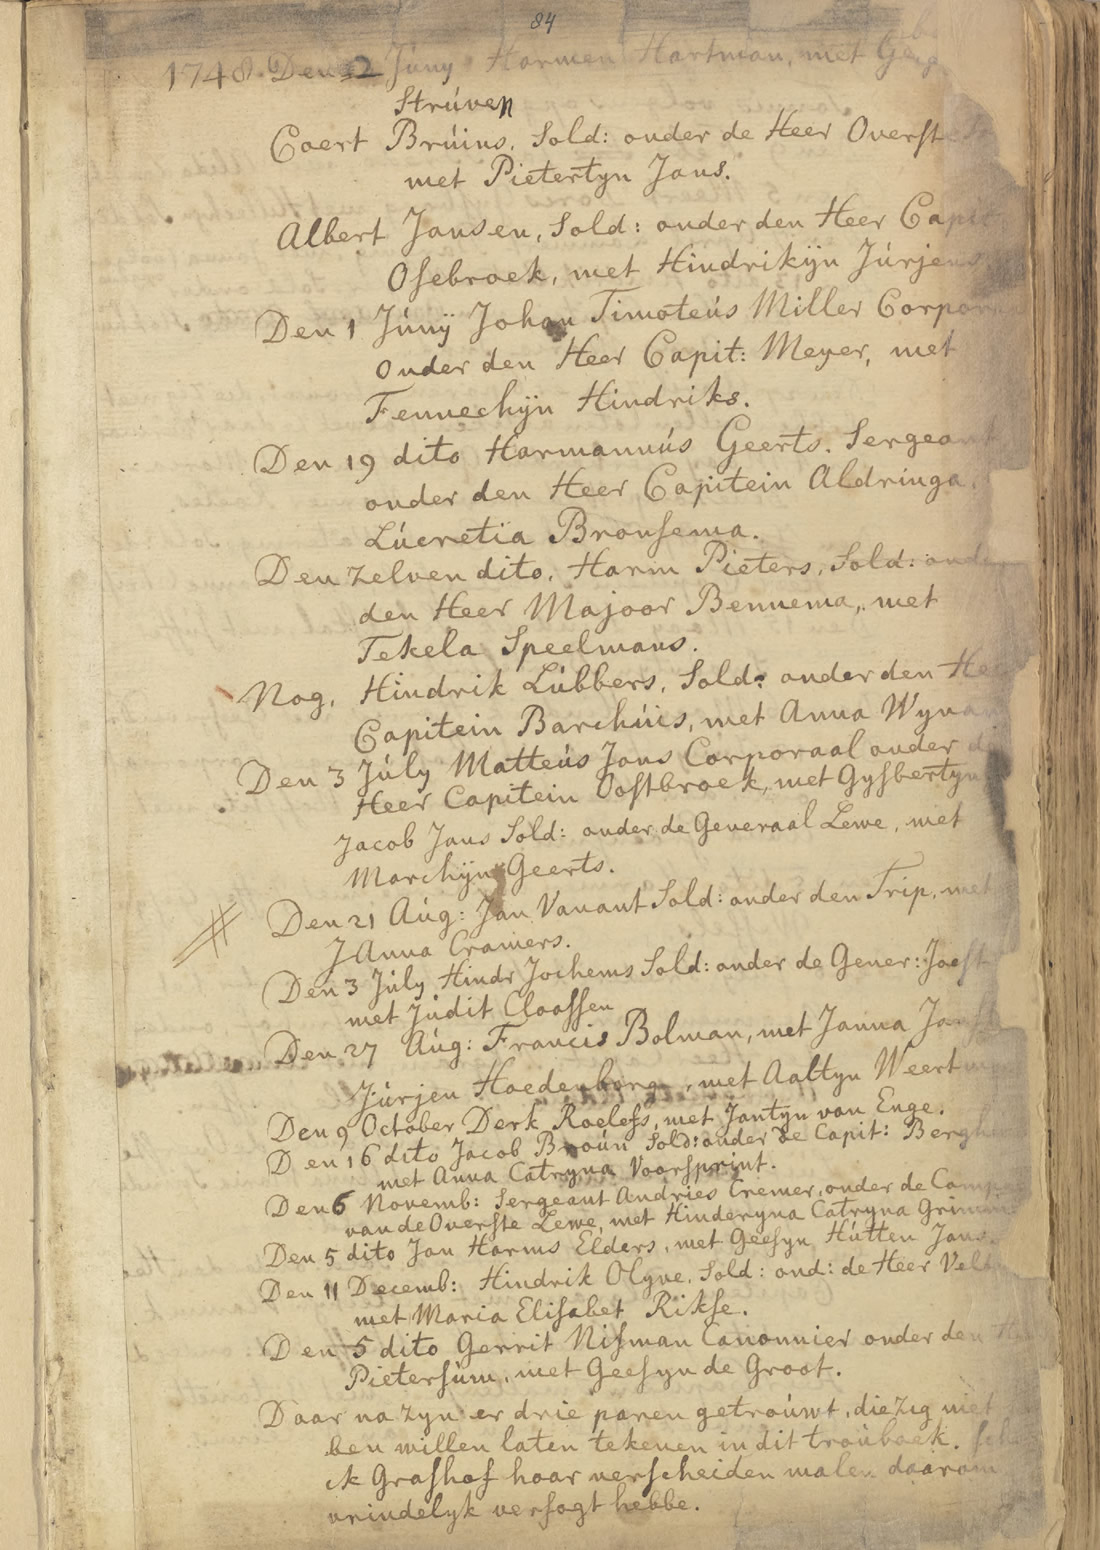 84
1748. Den 2 Júny Harmen Hartman, met
Strúven
Coert Brúins, Sold: onder de Heer Overst
met Pietertyn Jans.
Albert Jansen, Sold: onder den Heer Capit:
Osebroek, met Hindrikijn Júrjens
Den 1 Júnÿ Johan Timoteús Miller Corpor
onder den Heer Capit: Meyer, met
Fennechijn Hindriks.
Den 19 dito Harmannús Geerts. Sergeant
onder den Heer Capitein Aldringa.
Lúcretia Bronsema.
Den zelven dito, Harm Pieters, Sold: onder
den Heer Majoor Bennema, met
Tekela Speelmans.
Nog, Hindrik Lúbbers, Sold: onder den Hee
Capitein Barchúis, met Anna Wynan
Den 3 Júly Matteús Jans Corporaal onder d
Heer Capitein Oostbroek, met Gysbertyn
Jacob Jans Sold: onder de Generaal Lewe, met
Marchijn Geerts.
Den 21 Aúg: Jan Vanant Sold: onder den Trip, met
JAnna Cramers.
Den 3 Júly Hindr Jochems Sold: onder de Gener: Joost
met Júdit Claassen
Den 27 Aúg: Francis Bolman, met Janna Jans
Júrjen Hoedenborg, met Aaltyn Weert
Den 9 October Derk Roelefs, met Jantyn van Enge.
Den 16 dito Jacob Broún Sold: onder de Capit: Bergh
met Anna Catryna Voorsprint.
Den 6 Novemb: Sergeant Andries Cremer, onder de Comp
van de Overste Lewe, met Hinderyna Catryna Grimm
Den 5 dito Jan Harms Elders, met Geesyn Hútten Jans.
Den 11 Decemb: Hindrik Olyve, Sold: ond: de Heer Velt
met Maria Elisabet Rikse.
Den 5 dito Gerrit Nisman Canonnier onder den
Pietersúm, met Geesyn de Groot.
Daar na zyn er drie paren getroúwt, die zig niet
ben willen laten tekenen in dit troúboek.
ik Grashof haar verscheiden malen daarom
vrindelyk versogt hebbe.